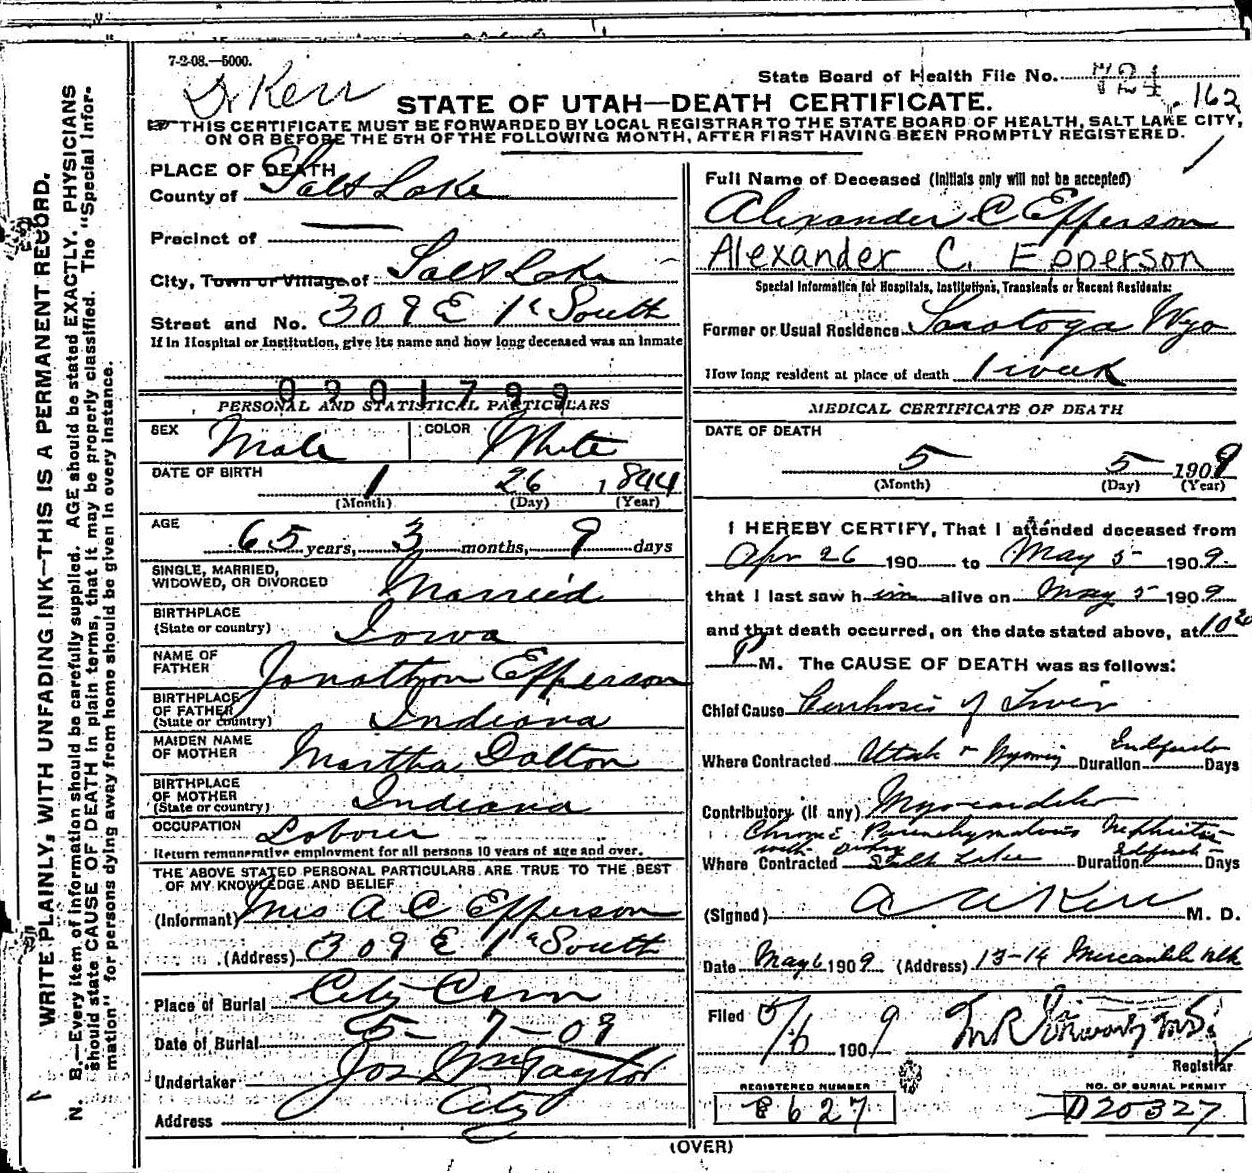 7-2-08.—5000.
Dr Kerr
State Board of Health File No. 724
162
STATE OF UTAH—DEATH CERTIFICATE.
THIS CERTIFICATE MUST BE FORWARDED BY LOCAL REGISTRAR TO THE STATE BOARD OF HEALTH, SALT LAKE CITY,
ON OR BEFORE THE 5TH OF THE FOLLOWING MONTH, AFTER FIRST HAVING BEEN PROMPTLY REGISTERED.
WRITE PLAINLY, WITH UNFADING INK—THIS IS A PERMANENT RECORD.
N. B.—Every item of information should be carefully supplied. AGE should be stated EXACTLY. PHYSICIANS
should state CAUSE OF DEATH in plain terms, that it may be properly classified. The "Special Infor-
mation" for persons dying away from home should be given in every instance.
PLACE OF DEATH
County of Salt Lake
Precinct of —
City, Town or Village of Salt Lake
Street and No. 309 E 1st South
If in Hospital or Institution, give its name and how long deceased was an inmate
0201799
PERSONAL AND STATISTICAL PARTICULARS
SEX Male COLOR White
DATE OF BIRTH 1 26 1844
(Month) (Day) (Year)
AGE 65 years, 3 months, 9 days
SINGLE, MARRIED,
WIDOWED, OR DIVORCED Married
BIRTHPLACE
(State or country) Iowa
NAME OF
FATHER Jonathon Epperson
BIRTHPLACE
OF FATHER
(State or country) Indiana
MAIDEN NAME
OF MOTHER Martha Dalton
BIRTHPLACE
OF MOTHER
(State or country) Indiana
OCCUPATION Laborer
Return remunerative employment for all persons 10 years of age and over.
THE ABOVE STATED PERSONAL PARTICULARS ARE TRUE TO THE BEST
OF MY KNOWLEDGE AND BELIEF
(Informant) Mrs A C Epperson
(Address) 309 E 1st South
Place of Burial City Cem
Date of Burial 5-7-09
Undertaker Jos Wm Taylor
Address City
Full Name of Deceased (Initials only will not be accepted)
Alexander C Epperson
Alexander C. Epperson
Special Information for Hospitals, Institutions, Transients or Recent Residents:
Former or Usual Residence Saratoga Wyo
How long resident at place of death 1 week
MEDICAL CERTIFICATE OF DEATH
DATE OF DEATH
5 5 1909
(Month) (Day) (Year)
I HEREBY CERTIFY, That I attended deceased from
Apr 26 190 to May 5 1909.
that I last saw him alive on May 5 1909
and that death occurred, on the date stated above, at 10 20
P M. The CAUSE OF DEATH was as follows:
Chief Cause Cirrhosis of Liver
Where Contracted Utah or Wyoming Duration Indefinite Days
Contributory (if any) Myocarditis
Chronic Parenchymatous Nephritis
Where Contracted Salt Lake Duration Indefinite Days
(Signed) A A Kerr M. D.
Date May 6 1909 (Address) 13-14 Mercantile Blk
Filed 5/6 1909
Registrar
REGISTERED NUMBER
8627
NO. OF BURIAL PERMIT
D20327
(OVER)